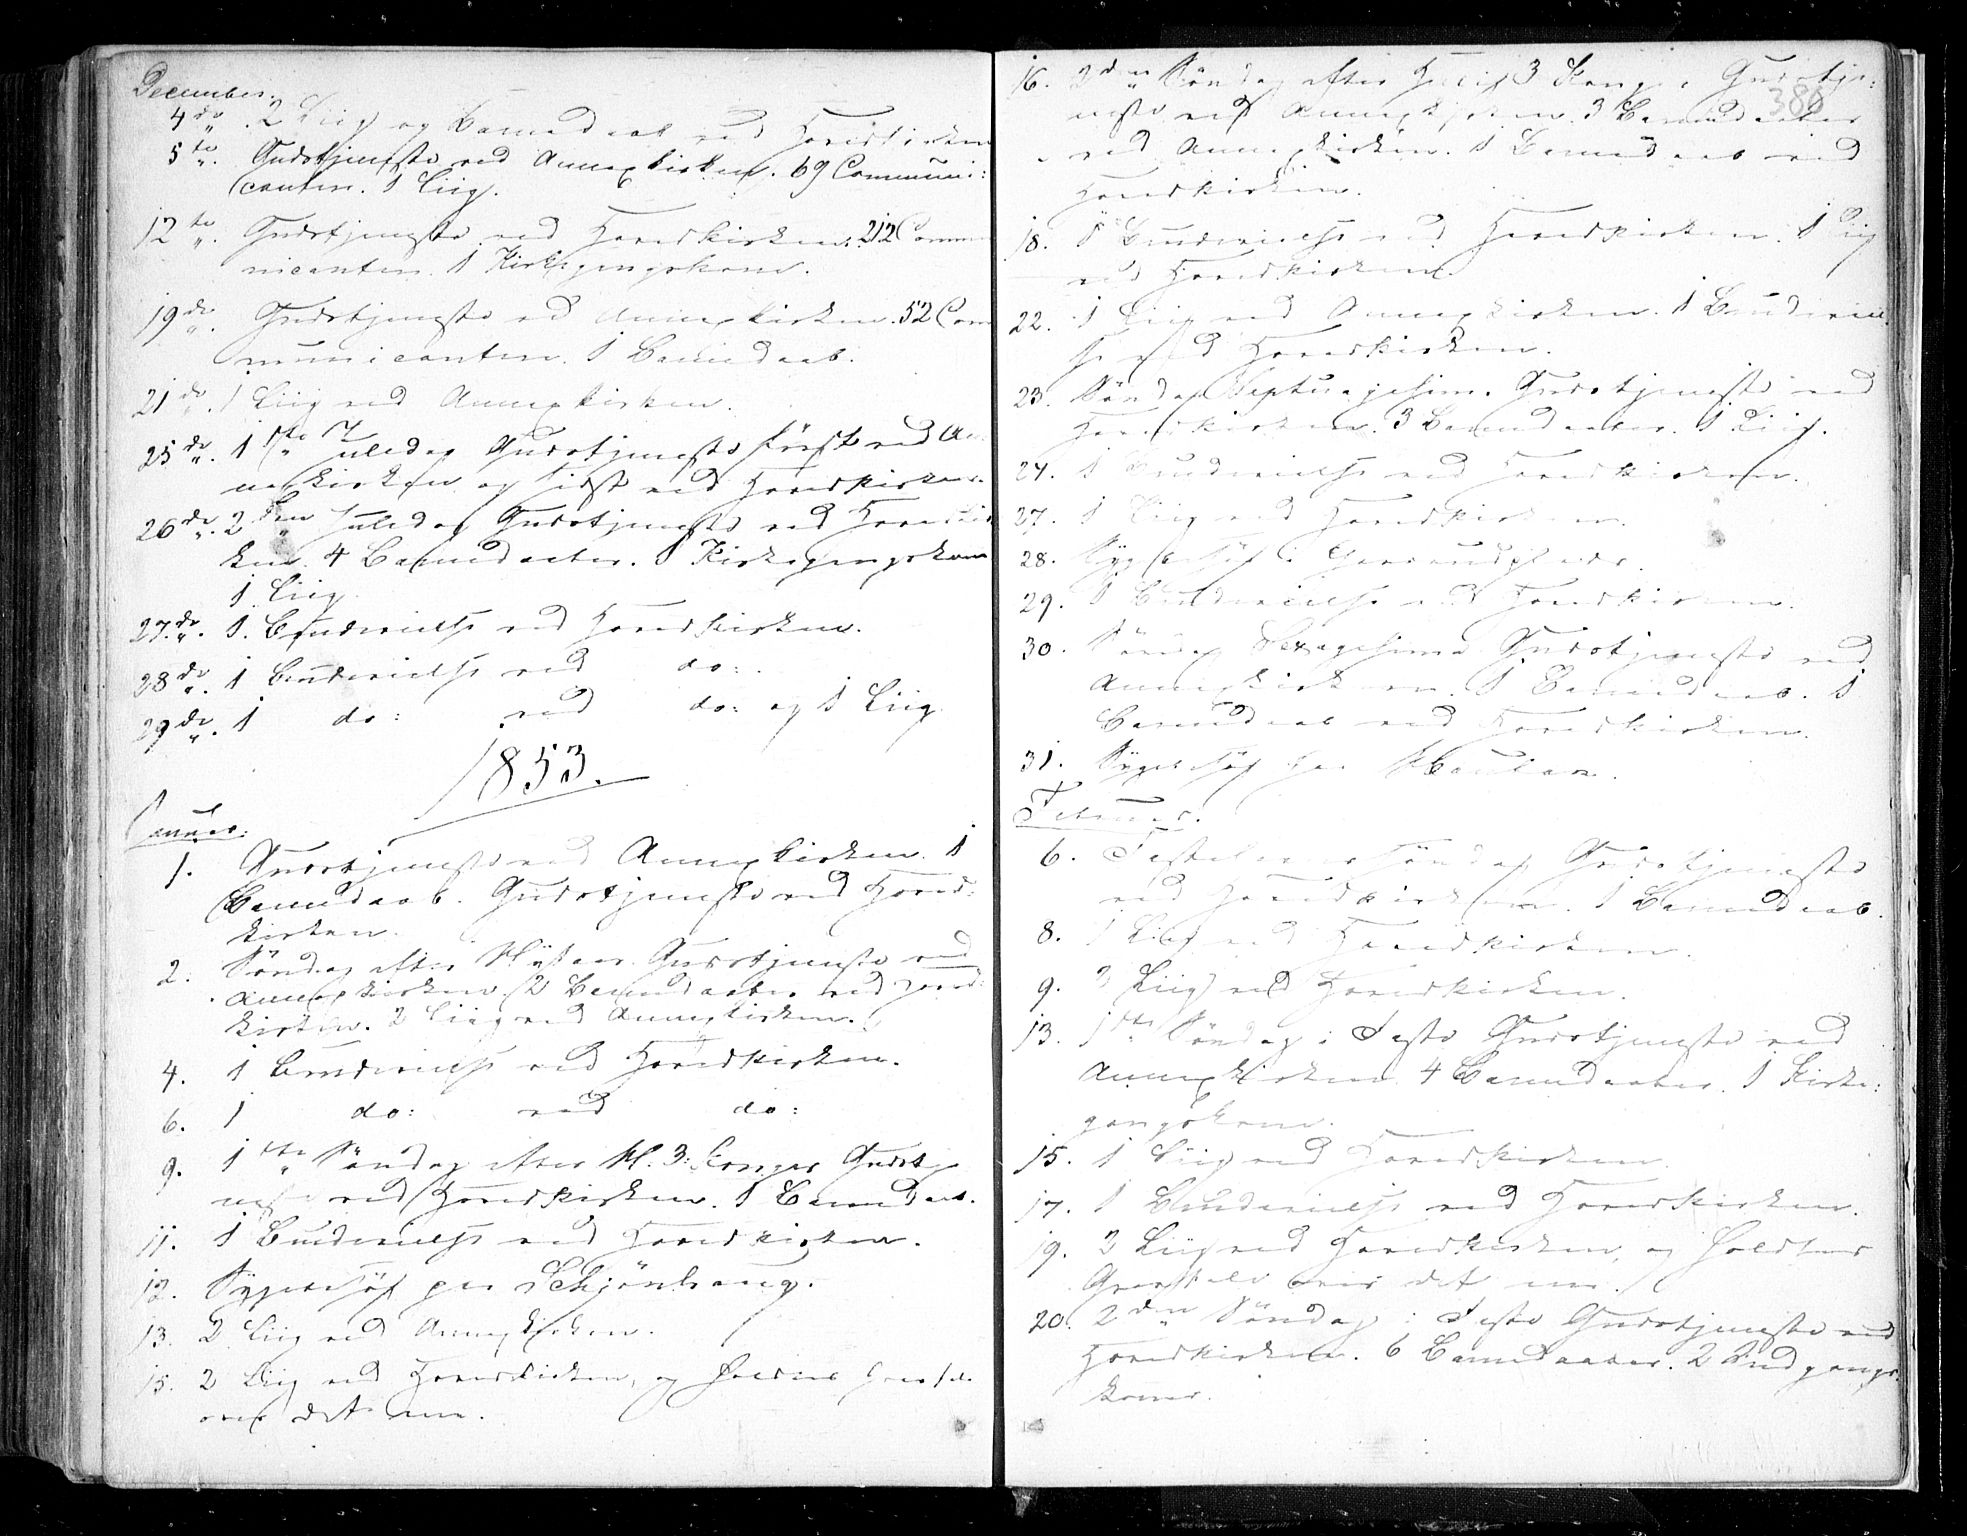 December.
4de „ 2 Liig og Barnedaab ved Hovedkirken
5te „ Gudstjeneste ved Annexkirken. 69 Communi:
canter. 1 Liig.
12te „ Gudstjeneste ved Hovedkirken. 212 Commu
nicanter. 1 Kirkegangskone.
19de „ Gudstjeneste ved Annexkirken. 52 Com
municanter. 1 Barnedaab.
21de „ 1 Liig ved Annexkirken.
25de „ 1ste „ Juledag Gudstjeneste først ved An
nexkirken og sidst ved Hovedkirken.
26de „ 2den „ Juledag Gudstjeneste ved Hovedkir
ken. 4 Barnedaaber. 1 Kirkegangskone
1 Liig.
27de „ 1 Brudevielse ved Hovedkirken.
28de „ 1 Brudevielse ved do:
29de „ 1 do: ved do: og 1 Liig.
1853.
Januar.
1. Gudstjeneste ved Annexkirken. 1
Barnedaab. Gudstjeneste ved Hoved:
kirken.
2. Søndag efter Nytaar. Gudstjeneste ved
Annexkirken 2 Barnedaaber ved Hoved:
kirken. 2 Liig ved Annexkirken.
4. 1 Brudevielse ved Hovedkirken.
6. 1 do: ved do:
9. 1ste „ Søndag efter H. 3. Konger Gudstje
neste ved Hovedkirken. 1 Barnedaab.
11. 1 Brudevielse ved Hovedkirken.
12. Sygebesøg paa Schjønhaug.
13. 2 Liig ved Annexkirken.
15. 2 Liig ved Hovedkirken, og holdt
over det ene.
386
16. 2den „ Søndag efter Hellig 3 Konger Gudstje:
neste ved Annexkirken. 3 Barnedaaber
ved Annexkirken. 1 Barnedaab ved
Hovedkirken.
18. 1 Brudevielse ved Hovedkirken. 1 Liig
ved Hovedkirken.
22. 1 Liig ved Annexkirken. 1 Brudeviel
se ved Hovedkirken.
23. Søndag Septuagesima Gudstjeneste ved
Hovedkirken. 3 Barnedaaber. 1 Liig.
24. 1 Brudevielse ved Hovedkirken.
27. 1 Liig ved Hovedkirken.
28. Sygebesøg i
29. 1 Brudevielse ved Hovedkirken.
30. Søndag Sexagesima Gudstjeneste ved
Annexkirken. 1 Barnedaab. 1
Barnedaab ved Hovedkirken.
31. Sygebesøg
Februar.
6. Fastelavns Søndag Gudstjeneste
ved Hovedkirken. 1 Barnedaab.
8. 1 Liig ved Hovedkirken.
9. 3 Liig ved Hovedkirken.
13. 1ste Søndag i Faste Gudstjeneste ved
Annexkirken 4 Barnedaaber. 1 Kirke:
gangskone.
15. 1 Liig ved Hovedkirken.
17. 1 Brudevielse ved Hovedkirken.
19. 2 Liig ved Hovedkirken, og holdt
over det ene.
20. 2den „ Søndag i Faste Gudstjeneste ved
Hovedkirken. 6 Barnedaaber. 2 Indgangs
koner.